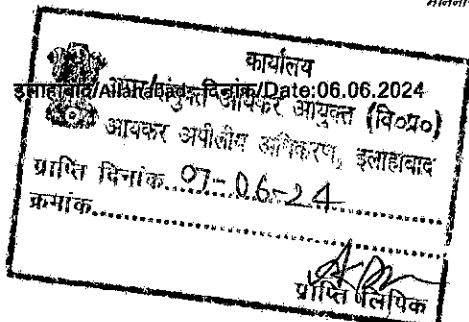 कार्यालय
इलाहाबाद/Allahabad, दिनांक/Date:06.06.2024
आयकर आयुक्त (वि०प्र०)
आयकर अपीलीय अधिकरण, इलाहाबाद
प्राप्ति दिनांक 07-06-24
क्रमांक
प्राप्ति लिपिक